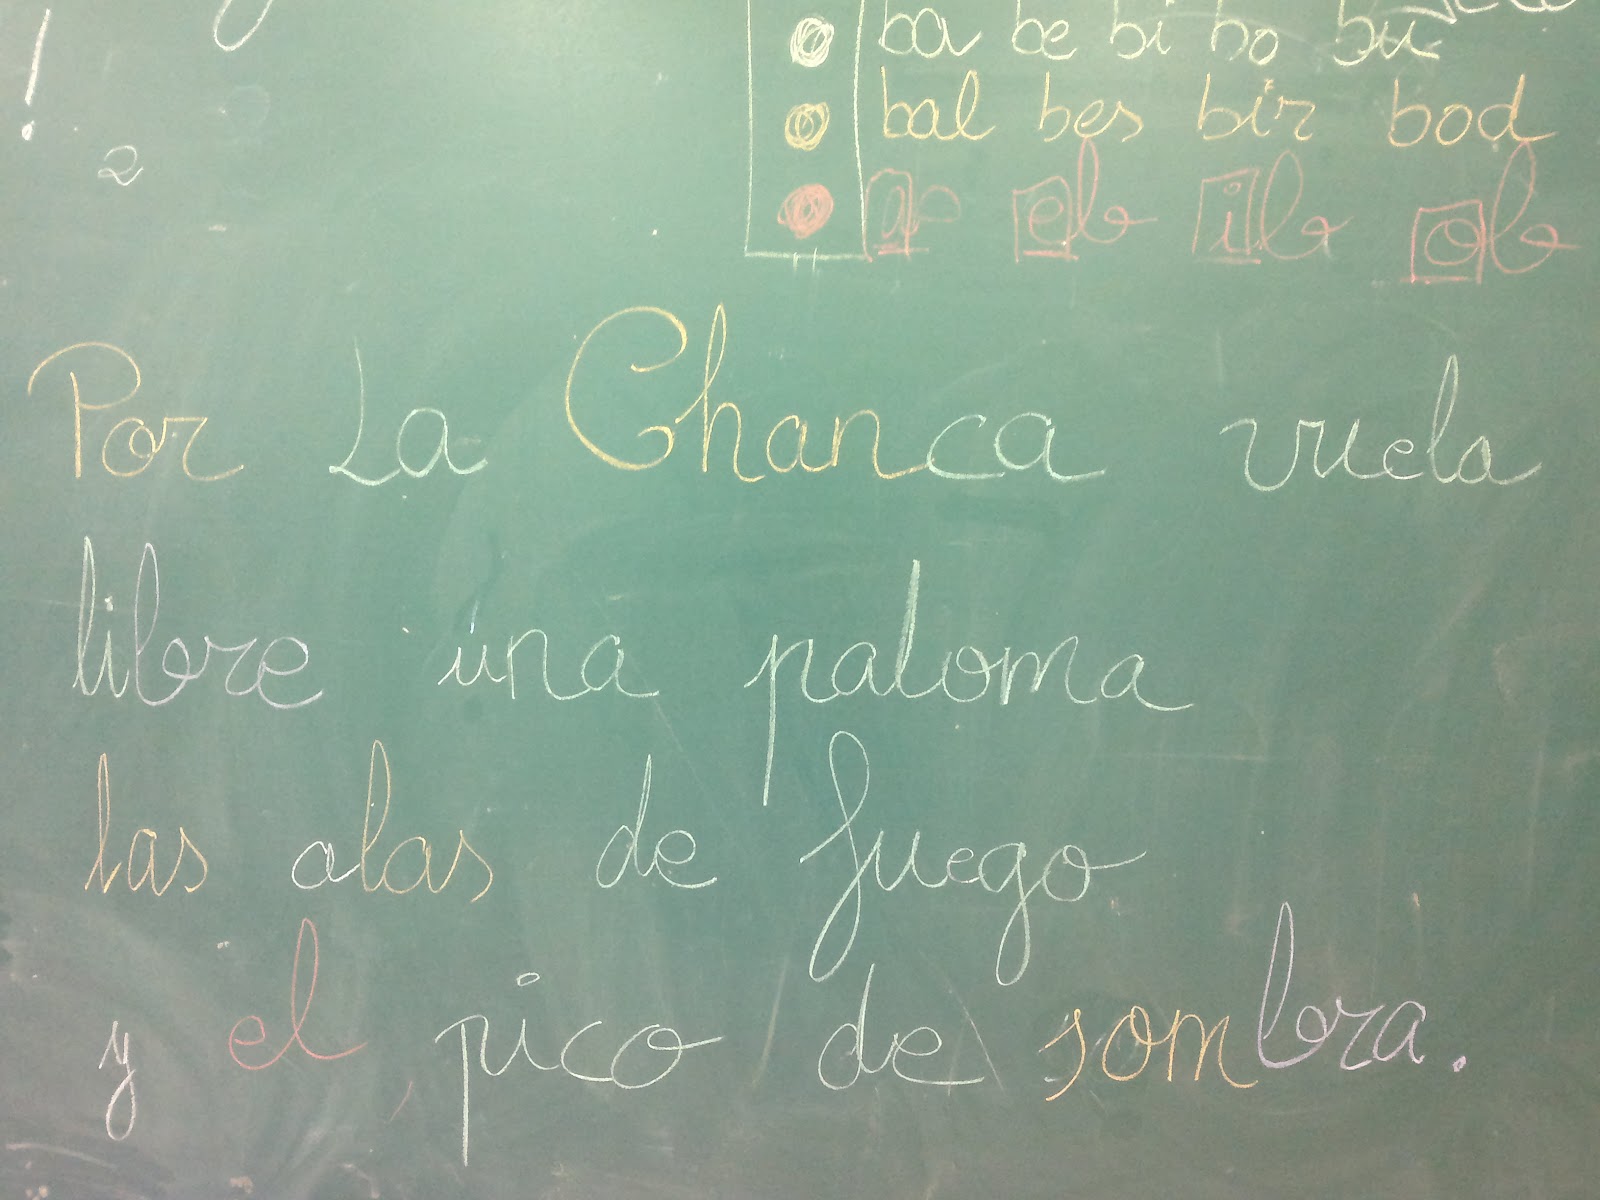 ba be bi bo bu
bal bes bir bod
2
eb ib ob
Por La Chanca vuela
libre una paloma
las alas de fuego
y el pico de sombra.